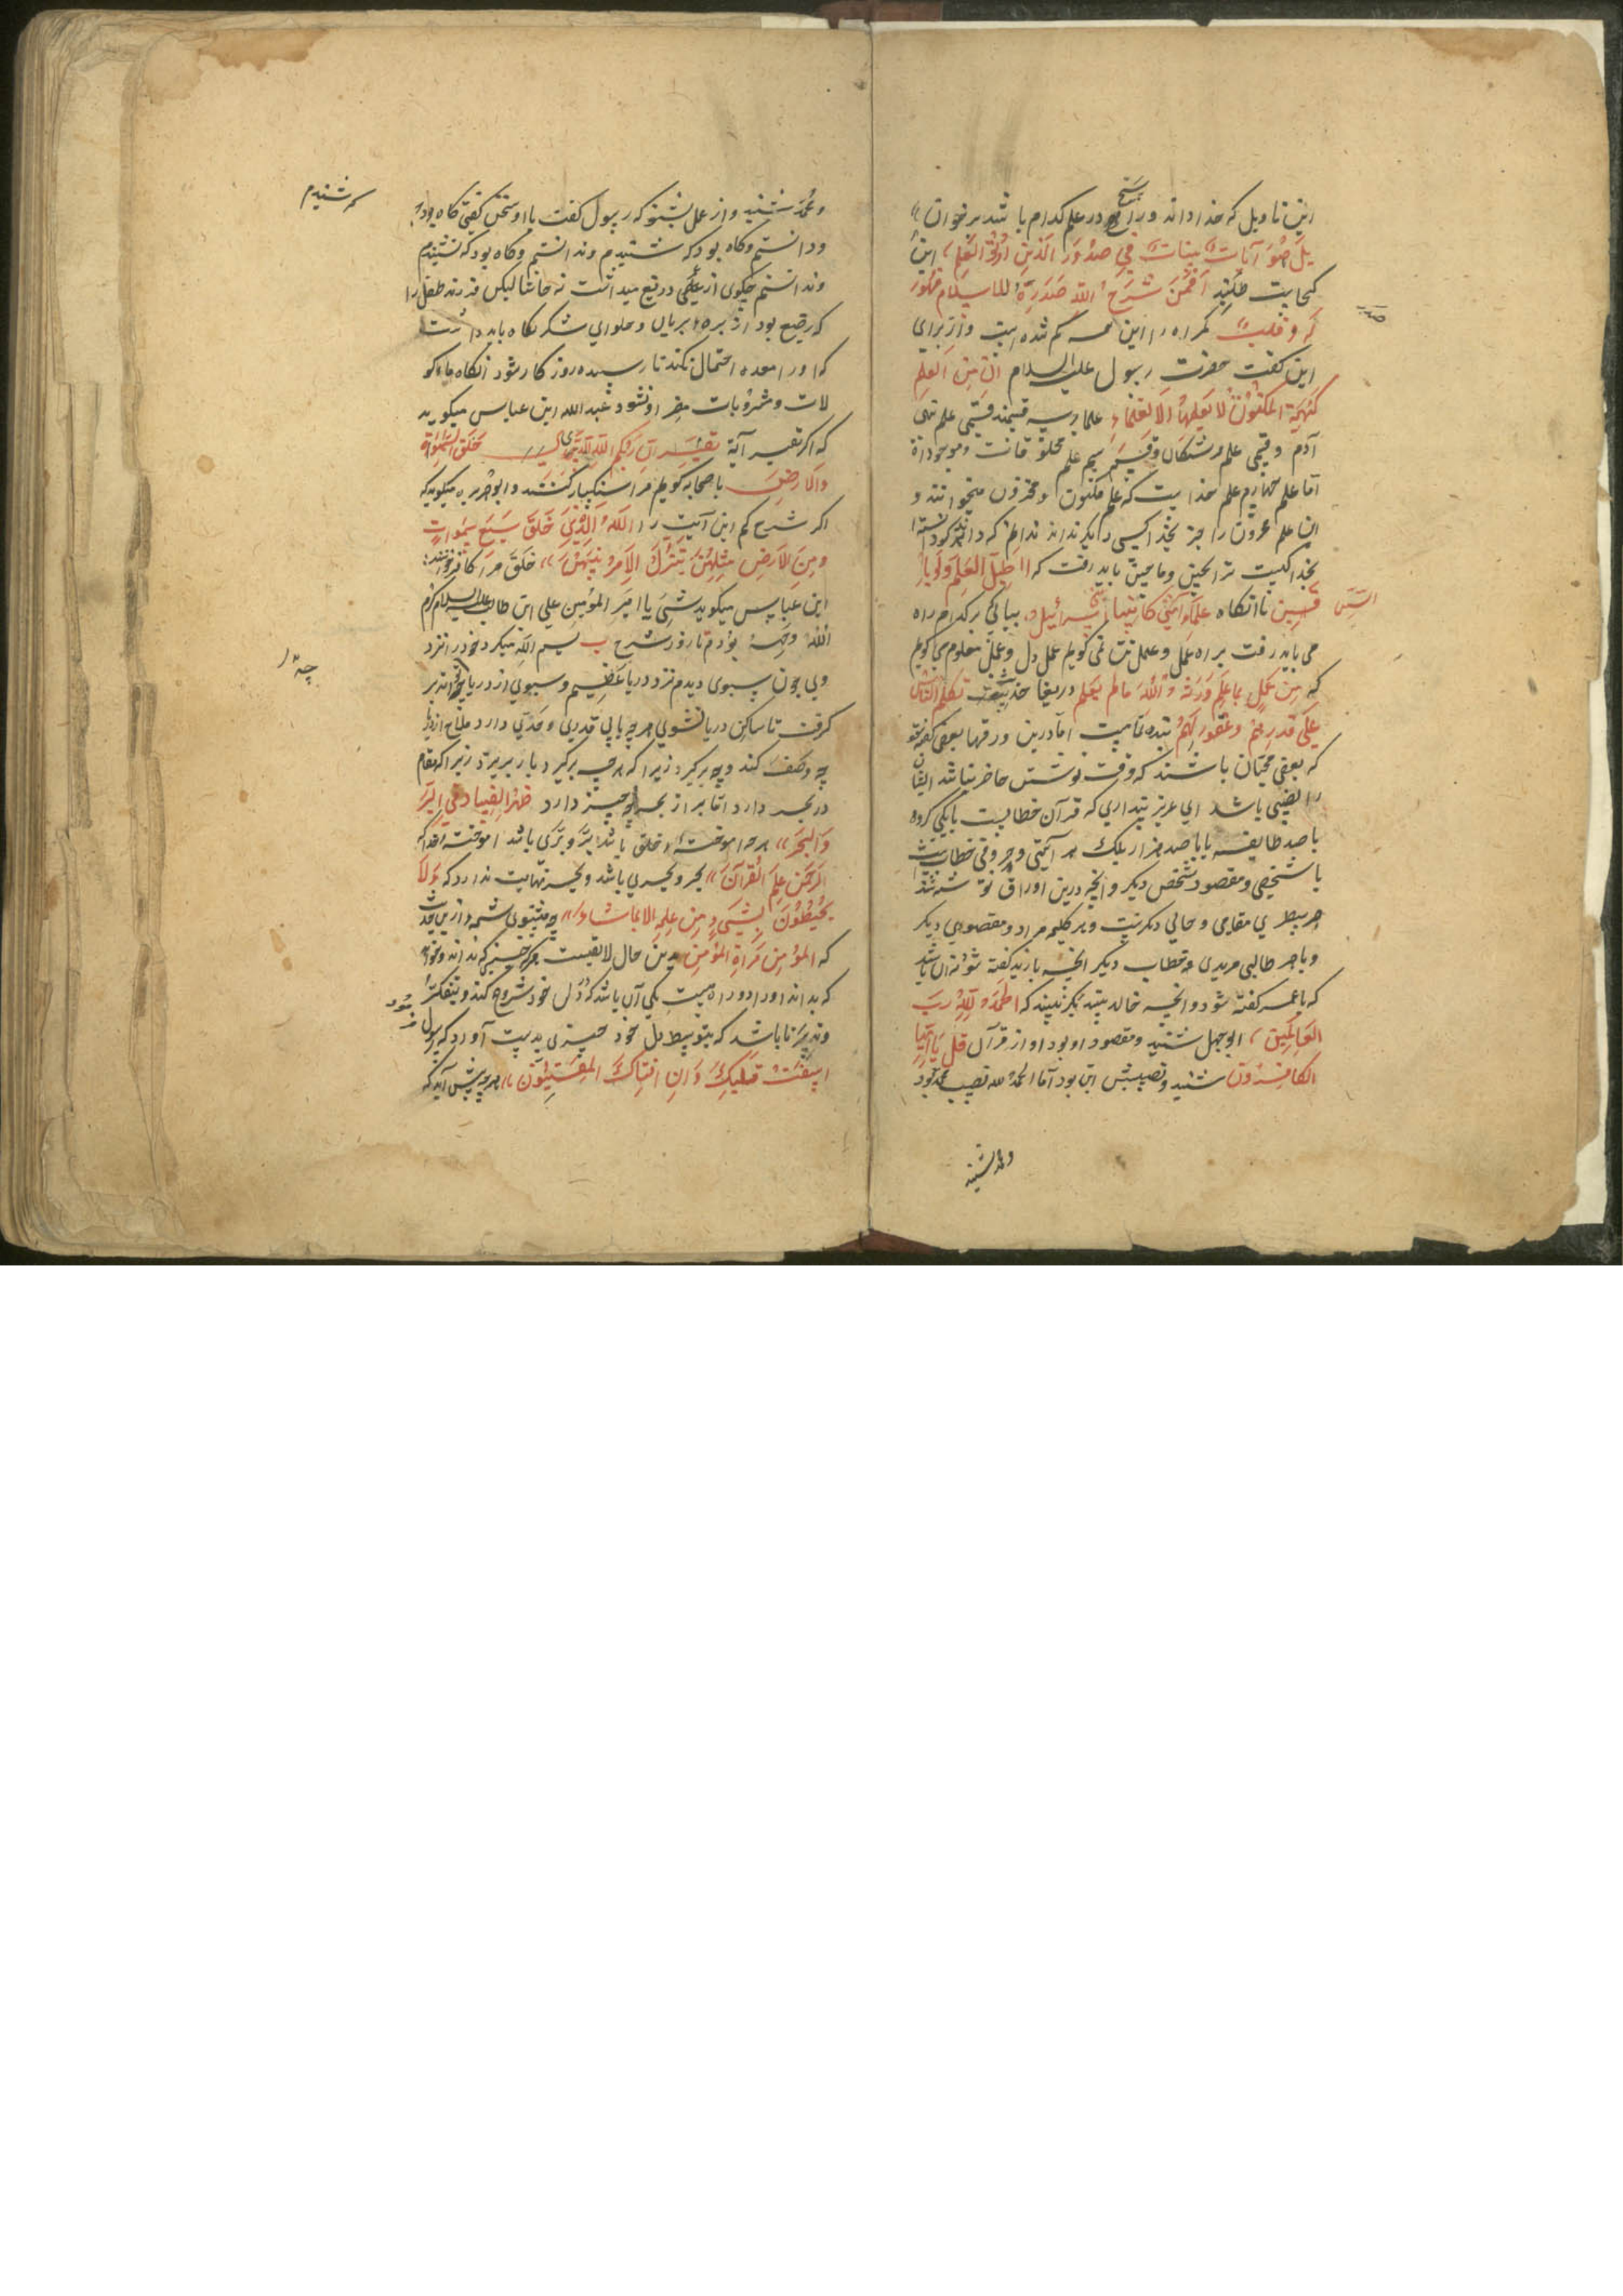 این تاویل که خدا داند و راسخ در علم کدام باشد برخوان
بل هو آیات بینات فی صدور الذین اوتوا العلم این
کجاست طلبد افمن شرح الله صدره للاسلام
و قلب کمراه را این همه کم شده است و از برای
این کفت حضرت رسول علیه السلام ان من العلم
کهیئة المکنون لا یعلمها الا العلماء علما بر سه قسمند قسمی علم بنی
آدم و قسمی علم فرشتکان و قسم سیم علم مخلوقات و موجودات
اما علم چهارم علم خدایست که علم مکنون و مخزون میخوانند و
این علم مخزون را جز بخدا کسی دیکر نداند ندانم که
بخدا کلیت ترا بچین و ماچین باید رفت که اطلب العلم ولو بال
الصین تا آنکاه علماء امتی کانبیاء بنی اسرائیل بیابی برکدام راه
می باید رفت براه عمل و عمل تن نمی کویم عمل دل و عمل معلوم می کویم
که من عمل بما علم ورثه الله ما لم یعلم دریغا تکلم الناس
علی قدر عقولهم بنده تمامیت اما درین ورقها بعضی کفته شود
که بعضی محبان باشند که وقت نوشتن حاضر نباشد ایشان
را نصیبی باشد ای عزیز پنداری که قرآن خطابست با یکی کروه
با صد طایفه یا با صد هزار بلک هر آیتی و حرفی خطابیست
با شخصی و مقصود شخص دیکر و انچه درین اوراق نوشته شد
هر سطری مقامی و حالی دیکرست و بر کلیمه مراد و مقصودی دیکر
و با هر طالبی مریدی و خطاب دیکر انچه با زید کفته شود نه آن باشد
که با عمر کفته شود و انچه خالد بیند بکر نبیند که الحمد لله رب
العالمین ابوجهل شنید و مقصود او بود او از قرآن قل یا ایها
الکافرون شنید و نصیبش این بود اما الحمد لله نصیب محمد بود
و محمد شنید
و محمد شنید و از عمل بشنو که رسول کفت با او سخن کفتی کاه بود
که شنیدم
و دانستم و کاه بود که شنیدم و ندانستم و کاه بود که نشنیدم
و ندانستم چکوی از علمی دریغ میداشت نه حاشا لیکن فرزند طفل را
که رضیع بود از بره بریان و حلوای شکر نکاه باید داشت
که او را معده احتمال نکند تا رسیده روزکار شود آنکاه ماءکو
لات و مشروبات مضر او نشود عبدالله ابن عباس میکوید
که اکر تفسیر آیه ان ربکم الله الذی خلق السموات
والارض با صحابه کویم مرا سنکسار کنند و ابوهریره میکوید که
اکر شرح کنم این آیت را الله الذی خلق سبع سموات
و من الارض مثلهن یتنزل الامر بینهن خلق مرا کافر خوانند
ابن عباس میکوید شبی با امیر المومنین علی ابن طالب علیه السلام کرم
الله وجهه بودم تا روز شرح ب بسم الله میکرد خود را نزد
وی چون سبوی دیدم نزد دریا عظیم و سبوی از دریا چه اندر
کرفت تا ساکن دریا نشوی هر چه یابی قدری و حدی دارد ملاح از دریا
چه وصف کند و چه برکیرد زیرا که هر چه برکیرد باز بریزد زیرا که مقام
در بحر دارد اما بر از بحر چه چیز دارد ظهر الفساد فی البر
والبحر هر چه اموخته خلق باشد بر و بری باشد اموخته خدا که
الرحمن علم القرآن بحر و بحری باشد و بحر نهایت ندارد که ولا
یحیطون بشیء من علمه الا بما شاء چه میشنوی شمه از این حدیث
که المؤمن مرآة المؤمن بدین حال لایقست هر که چیزی که نداند و خواهد
که بداند او را دو راه هست یکی آن باشد که بدل خود شروع کند و بتفکر
و تدبر تا باشد که بتوسط دل خود چیزی بدست آورد که رسول فرمود
استفت قلبک و ان افتاک المفتیون هر چه پیش آید که